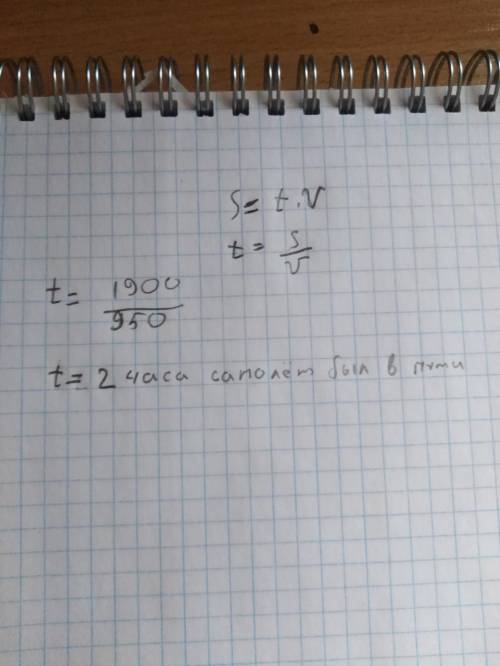 S = t · V
t = S/V
t = 1900/950
t = 2 часа самолёт был в пути